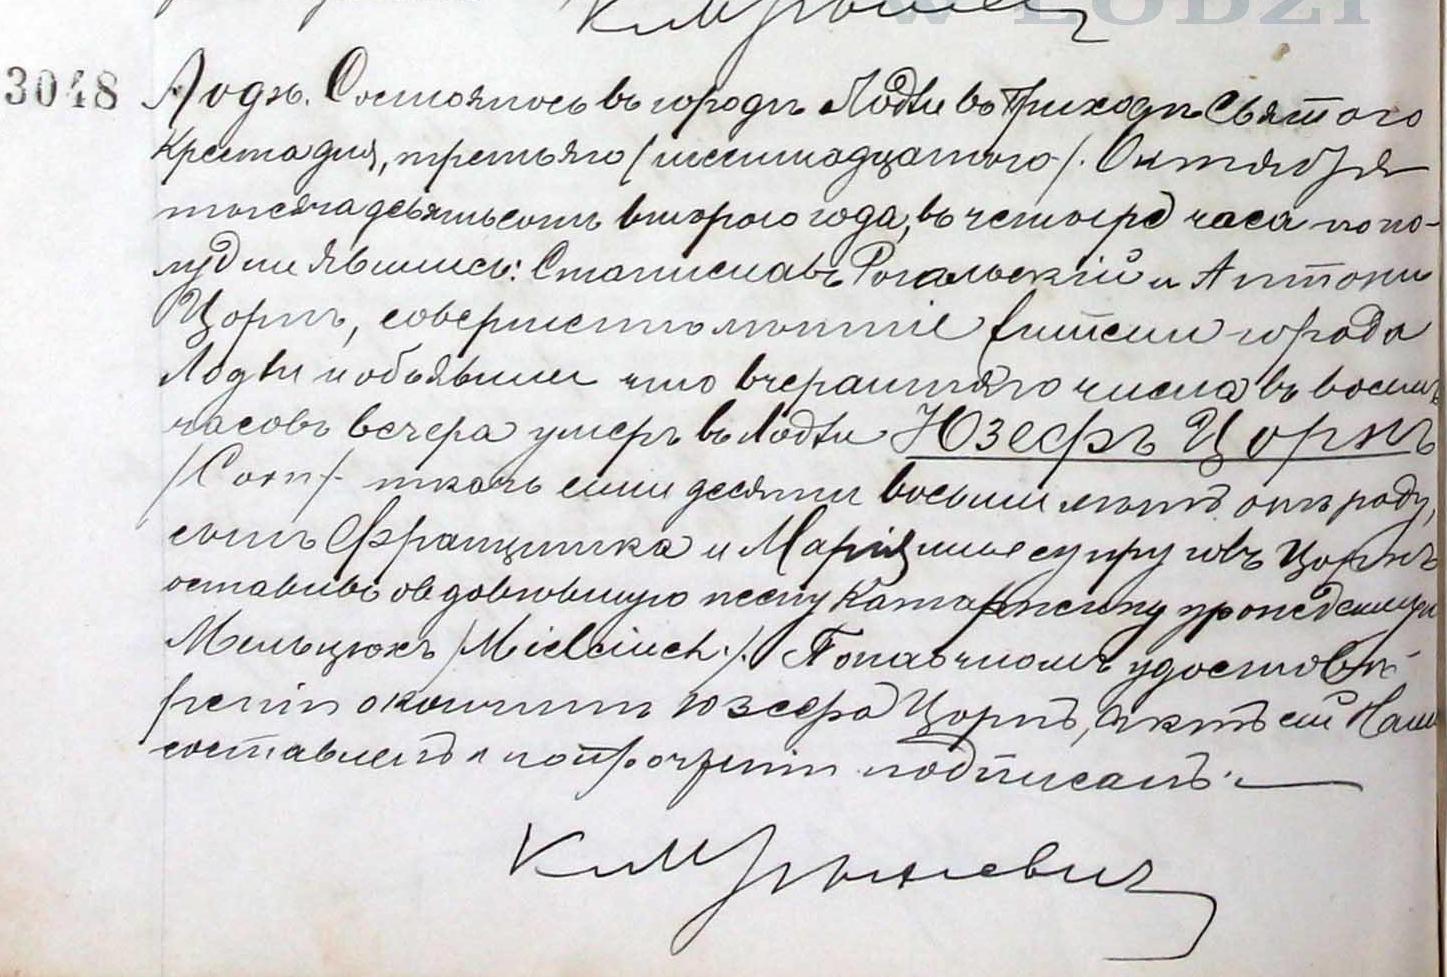 W ŁODZI
3048 Лодзь. Состоялось въ городѣ Лодзи въ приходѣ Святого
Креста дня, третьяго /шестнадцатого/. Октября
тысяча девятьсотъ второго года, въ четыре часа попо-
лудни явились: Станиславъ Рогальскій и Антони
Цорнъ, совершеннолѣтніе жители города
Лодзи и объявили что вчерашняго числа въ восемь
часовъ вечера умеръ въ Лодзи Юзефъ Цорнъ
/Corn/. ткачъ семидесяти восьми лѣтъ отъ роду,
сынъ Францишка и Маріи супруговъ Цорнъ
оставивъ овдовѣвшую жену Катаржину урожденную
Мельцюхъ /Mielciuch./. По наочномъ удостовѣ-
реніи о кончинѣ Юзефа Цорнъ, Актъ сей Нами
составленъ и по прочтеніи подписанъ.